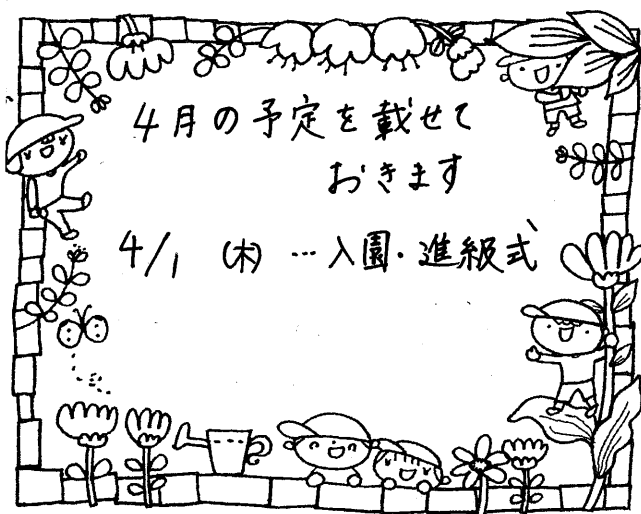 4月の予定を載せて
おきます
4/1 (木) …入園・進級式